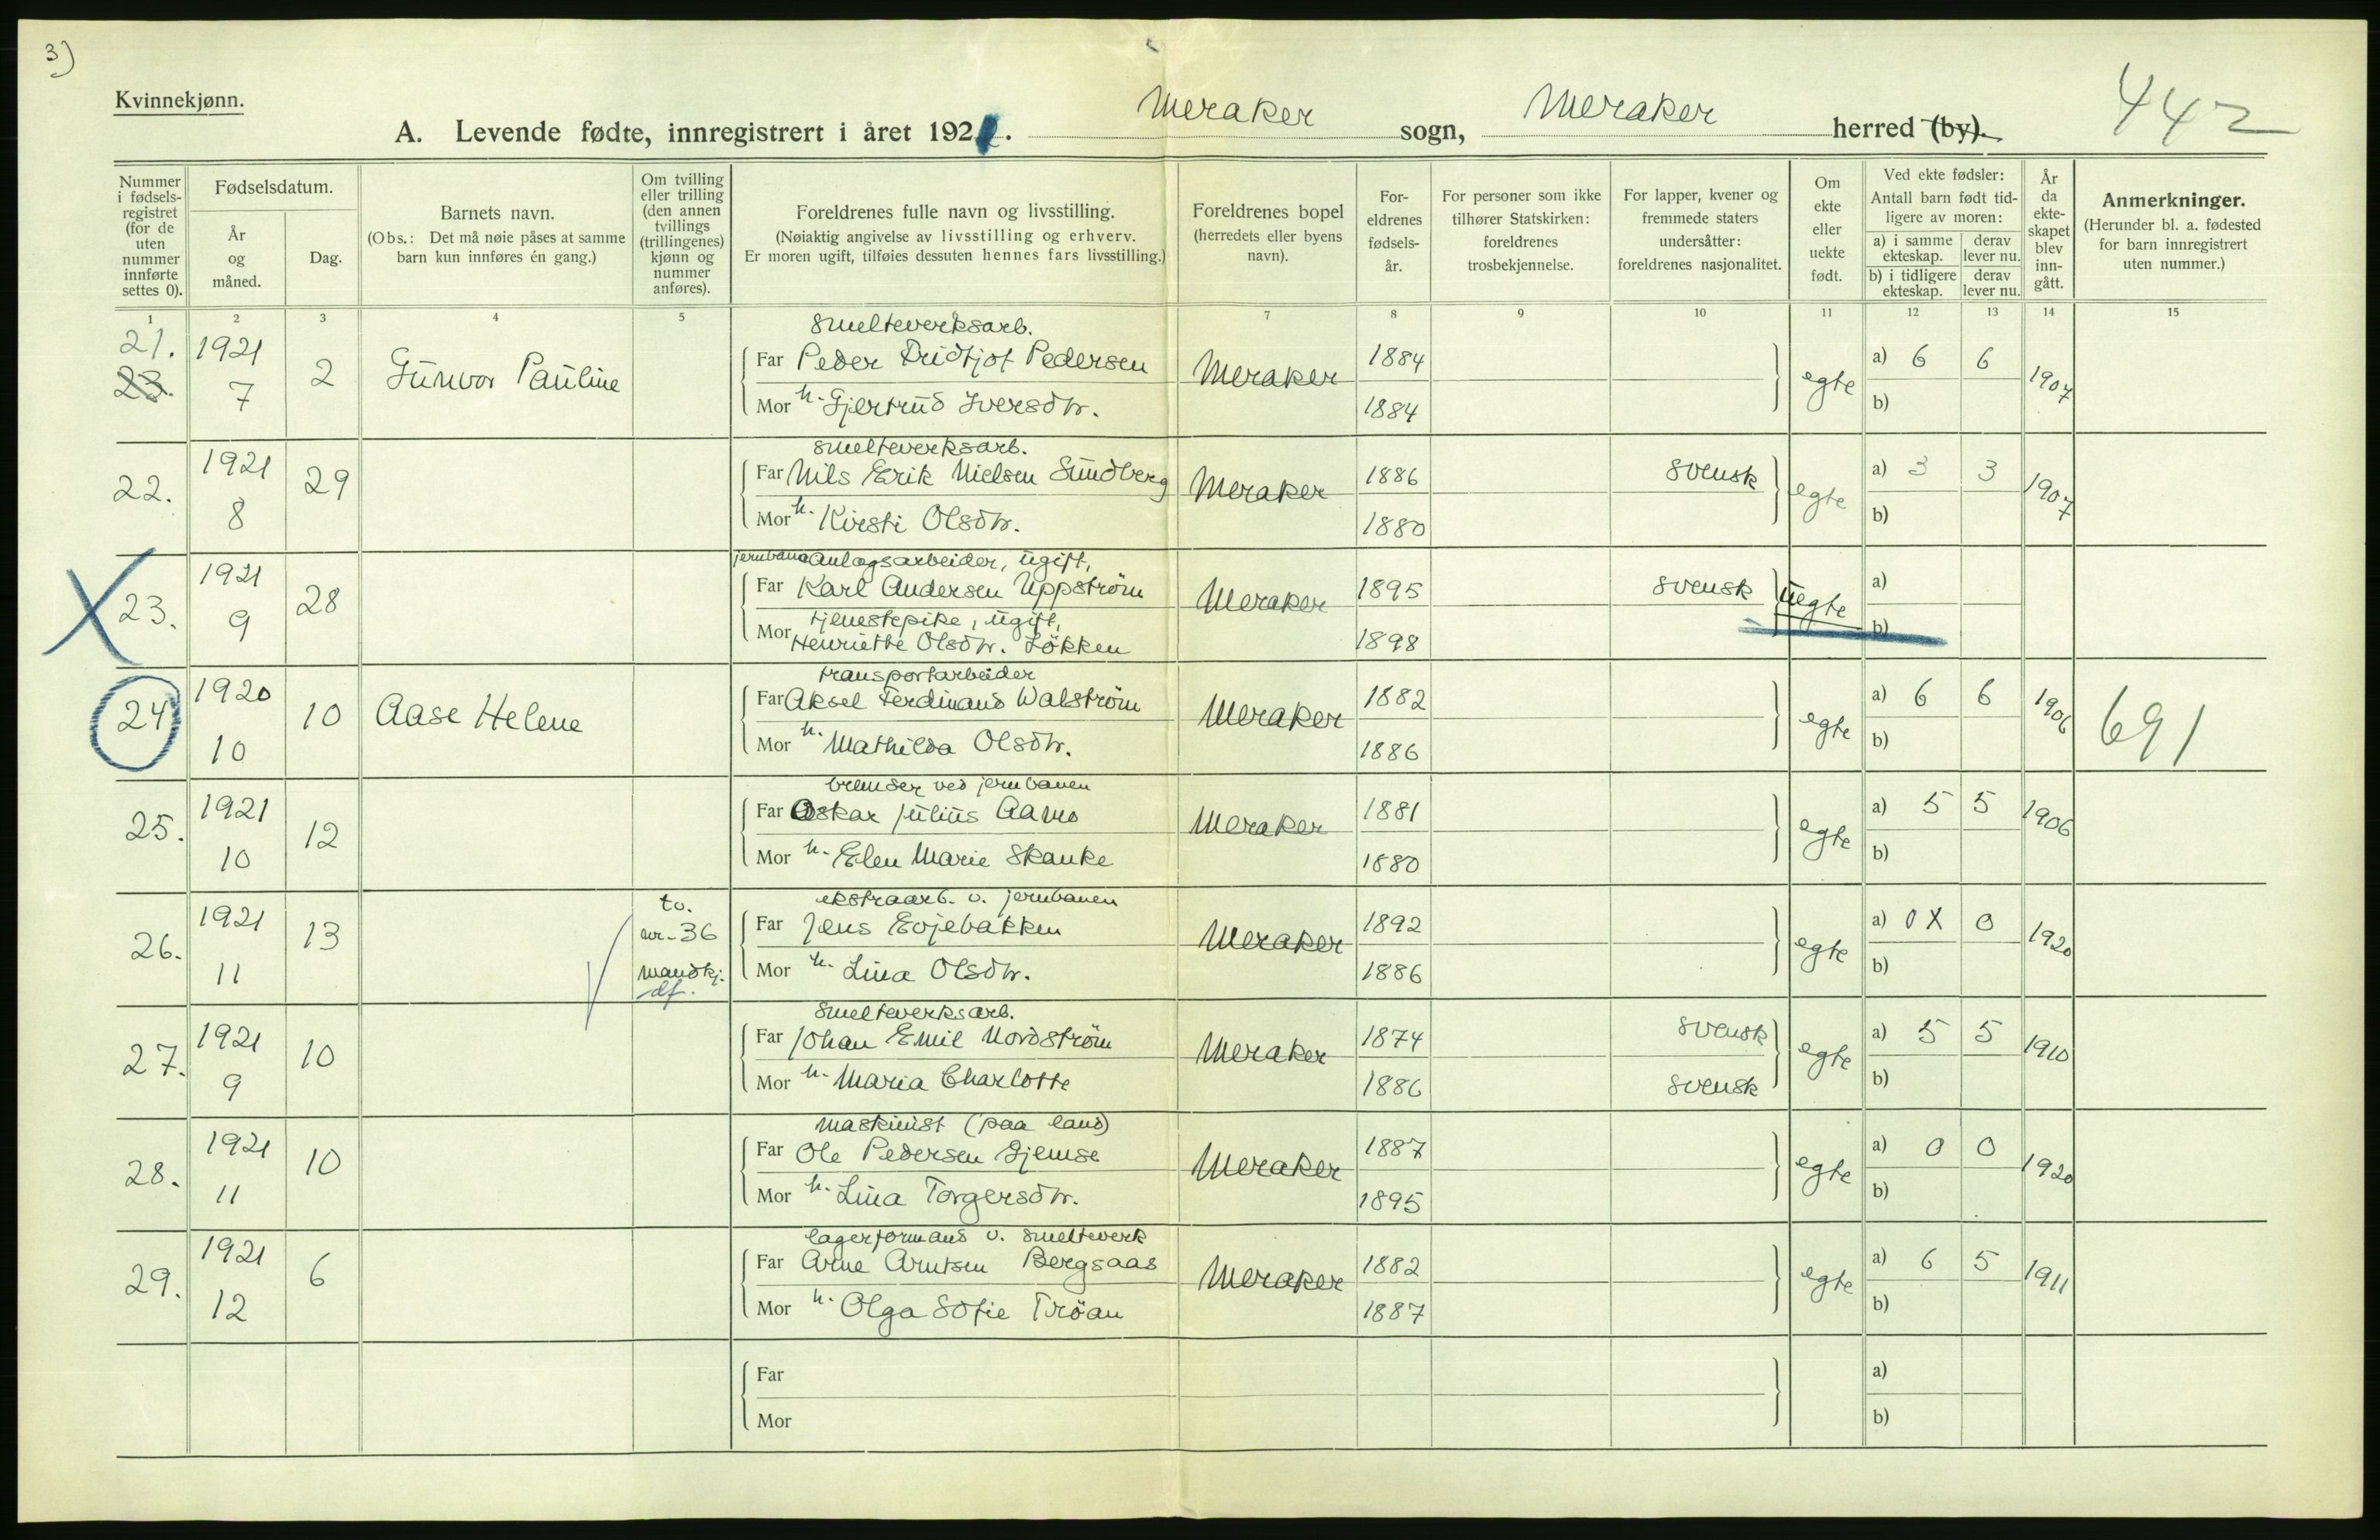 3)
Kvinnekjønn.
442
A. Levende fødte, innregistrert i året 1921. Meraker sogn, Meraker herred (by).
Nummer i fødsels-registret (for de uten nummer innførte settes 0).
Fødselsdatum.
År og måned.
Dag.
Barnets navn.
(Obs.: Det må nøie påses at samme barn kun innføres én gang.)
Om tvilling eller trilling (den annen tvillings (trillingenes) kjønn og nummer anføres).
Foreldrenes fulle navn og livsstilling.
(Nøiaktig angivelse av livsstilling og erhverv.
Er moren ugift, tilføies dessuten hennes fars livsstilling.)
Foreldrenes bopel (herredets eller byens navn).
For-eldrenes fødsels-år.
For personer som ikke tilhører Statskirken: foreldrenes trosbekjennelse.
For lapper, kvener og fremmede staters undersåtter: foreldrenes nasjonalitet.
Om ekte eller uekte født.
Ved ekte fødsler:
Antall barn født tid-ligere av moren:
a) i samme ekteskap.
derav lever nu.
b) i tidligere ekteskap.
derav lever nu.
År da ekte-skapet blev inn-gått.
Anmerkninger.
(Herunder bl. a. fødested for barn innregistrert uten nummer.)
1 2 3 4 5 7 8 9 10 11 12 13 14 15
smelteverksarb.
21. 1921 2 Gunvor Pauline Far Peder Fridtjof Pedersen Meraker 1884 egte a) 6 6 1907
23. 7 Mor h. Gjertrud Iversdtr. 1884 b)
smelteverksarb.
22. 1921 29 Far Nils Erik Nielsen Sundberg Meraker 1886 svensk egte a) 3 3 1907
8 Mor h. Kirsti Olsdtr. 1880 b)
jernbaneanlægsarbeider, ugift,
X 23. 1921 28 Far Karl Andersen Uppstrøm Meraker 1895 svensk uegte a)
tjenestepike, ugift,
9 Mor Henriette Olsdtr. Løkken 1898 b)
transportarbeider
24 1920 10 Aase Helene Far Aksel Ferdinand Walstrøm Meraker 1882 egte a) 6 6 1906 691
10 Mor h. Mathilda Olsdtr. 1886 b)
bremser ved jernbanen
25. 1921 12 Far Oskar Julius Aamo Meraker 1881 egte a) 5 5 1906
10 Mor h. Elen Marie Skanke 1880 b)
ekstraarb. v. jernbanen
26. 1921 13 tv. nr. 36 Far Jens Evjebakken Meraker 1892 egte a) 0 X 0 1920
11 mandkj. df. Mor h. Lina Olsdtr. 1886 b)
smelteverksarb.
27. 1921 10 Far Johan Emil Nordstrøm Meraker 1874 svensk egte a) 5 5 1910
9 Mor h. Maria Charlotte 1886 svensk b)
maskinist (paa land)
28. 1921 10 Far Ole Pedersen Gjemse Meraker 1887 egte a) 0 0 1920
11 Mor h. Lina Torgersdtr. 1895 b)
lagerformand v. smelteverk
29. 1921 6 Far Arne Arntsen Bergsaas Meraker 1882 egte a) 6 5 1911
12 Mor h. Olga Sofie Trøan 1887 b)
Far a)
Mor b)